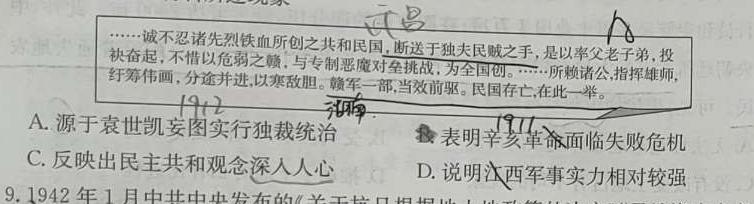 武昌
……诚不忍诸先烈铁血所创之共和民国,断送于独夫民贼之手,是以率父老子弟,投
袂奋起,不惜以危弱之赣,与专制恶魔对垒挑战,为全国创。……所赖诸公,指挥雄师,
纡筹伟画,分途并进,以寒敌胆。赣军一部,当效前驱。民国存亡,在此一举。
1912
1911
A. 源于袁世凯妄图实行独裁统治
B. 表明辛亥革命面临失败危机
C. 反映出民主共和观念深入人心
D. 说明江西军事实力相对较强
9. 1942 年 1 月中共中央发布的《关于抗日根据地土地政策的决定》